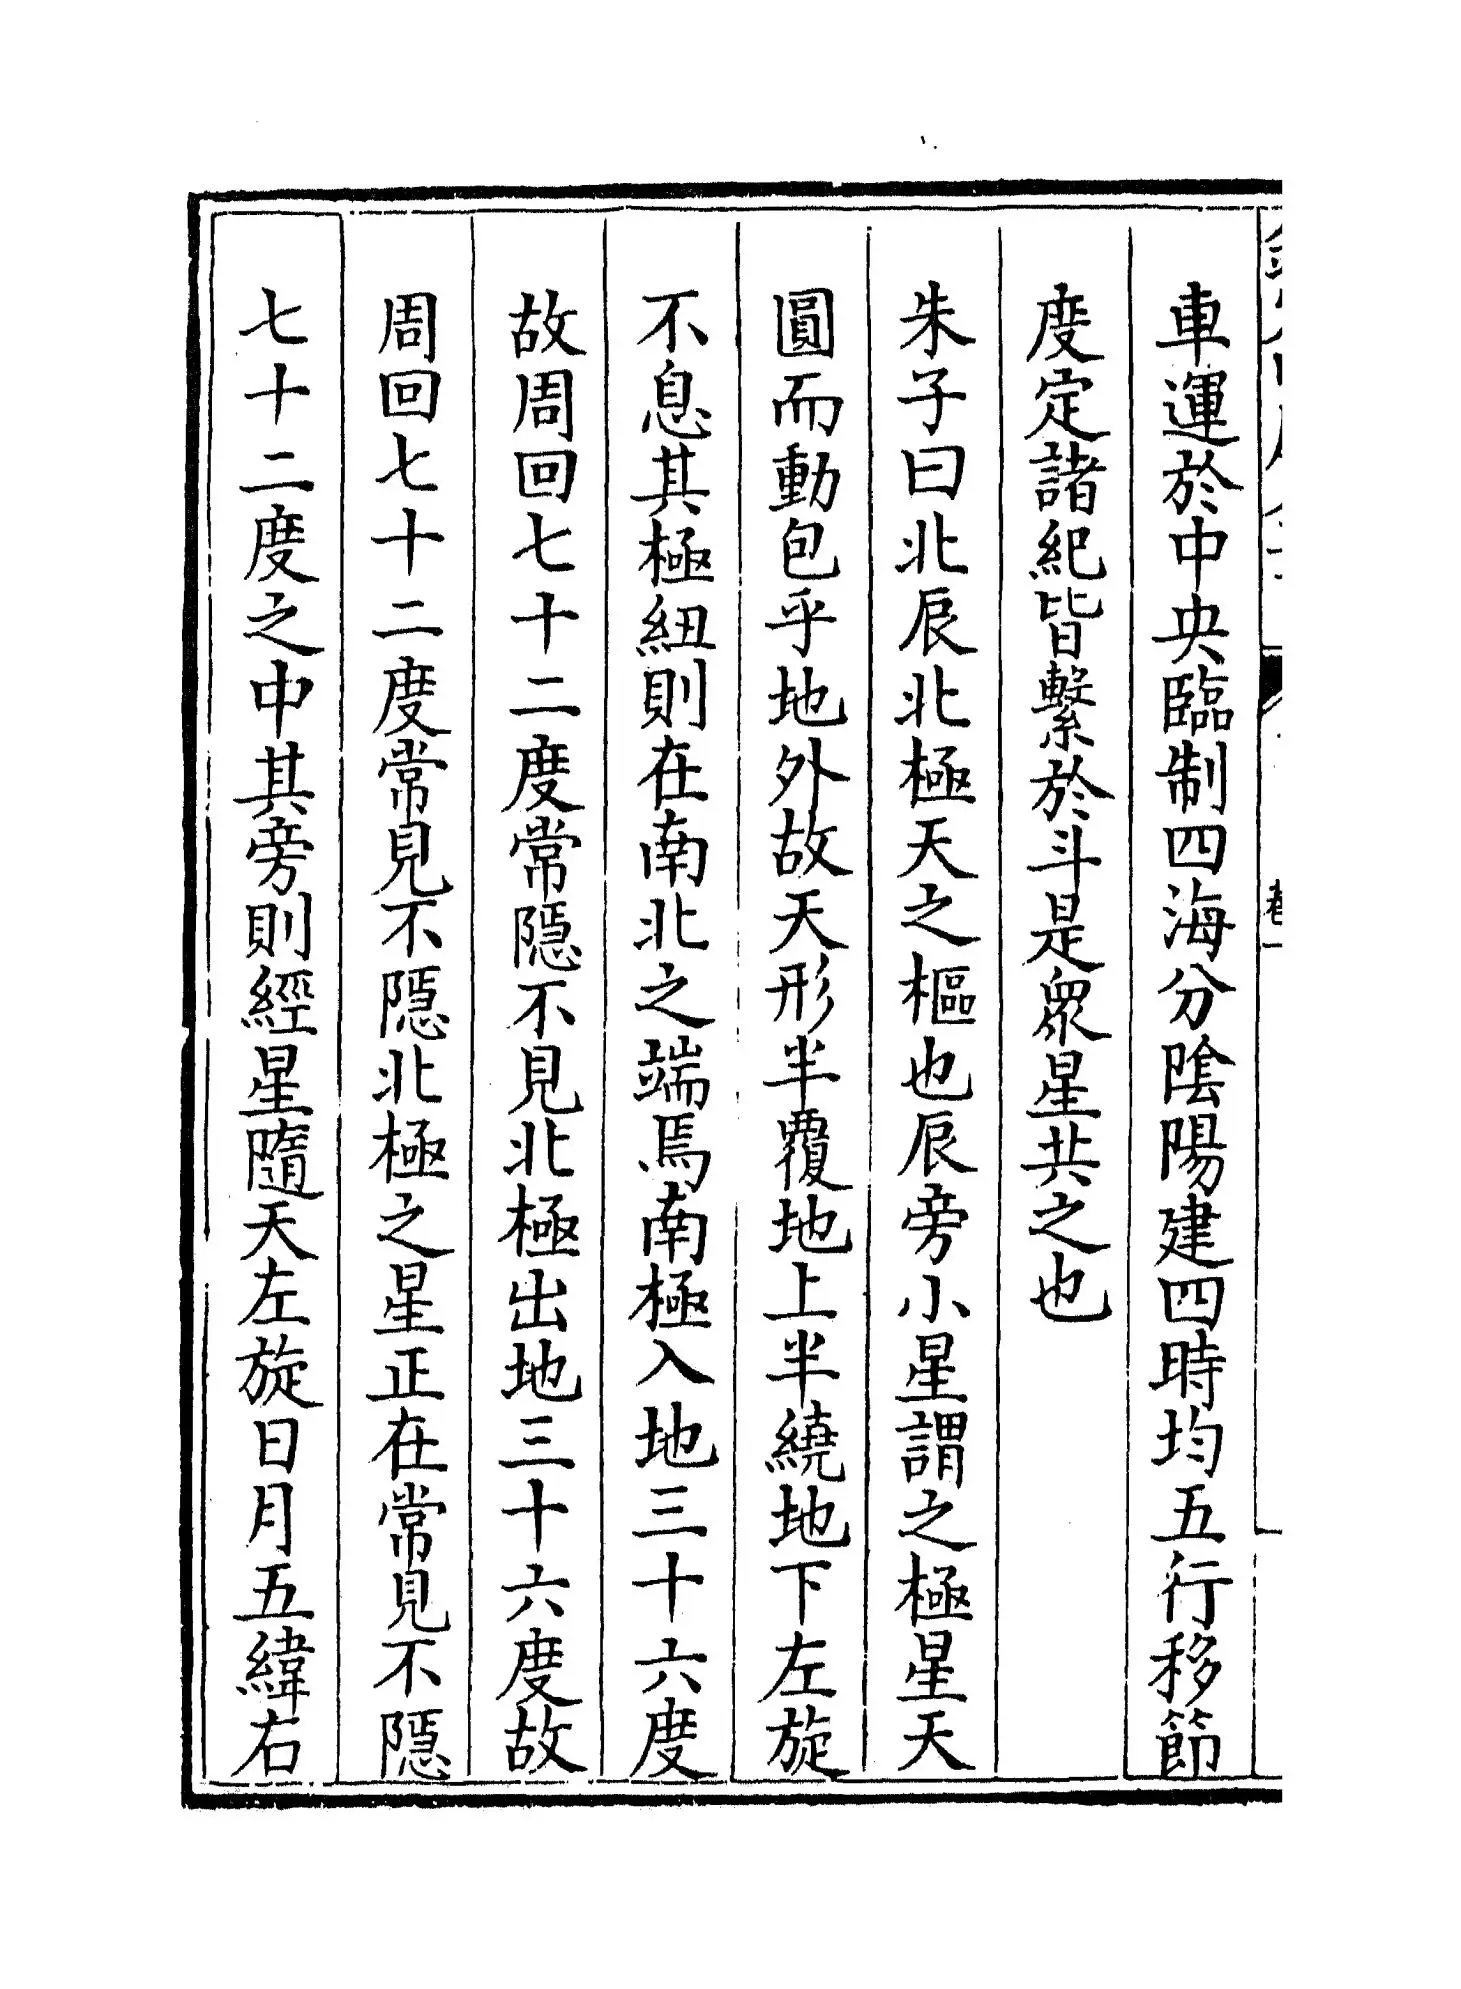 車運於中央臨制四海分陰陽建四時均五行移節
度定諸紀皆繫於斗是衆星共之也
朱子曰北辰北極天之樞也辰旁小星謂之極星天
圓而動包乎地外故天形半覆地上半繞地下左旋
不息其極紐則在南北之端焉南極入地三十六度
故周回七十二度常隱不見北極出地三十六度故
周回七十二度常見不隱北極之星正在常見不隱
七十二度之中其旁則經星隨天左旋日月五緯右